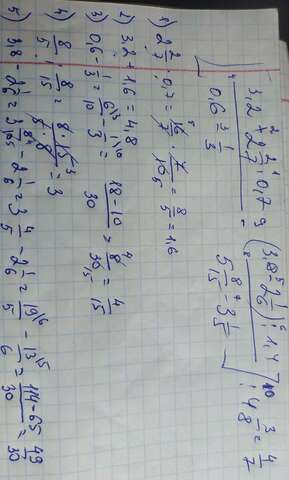 3,2 + 2 2/7 · 0,7 (3,8 - 2 1/6) : 1,4
0,6 - 1/3 5 8/15 - 3 1/5 : 4 3/8 = 4/7
1) 2 2/7 · 0,7 = 16/7 · 7/10 = 8/5 = 1,6
2) 3,2 + 1,6 = 4,8
3) 0,6 - 1/3 = 6/10 - 1/3 = 18-10/30 = 8/30 = 4/15
4) 8/5 : 8/15 = 8·15/5·8 = 3
5) 3,8 - 2 1/6 = 3 8/10 - 2 1/6 = 3 4/5 - 2 1/6 = 19/5 - 13/6 = 114-65/30 = 49/30